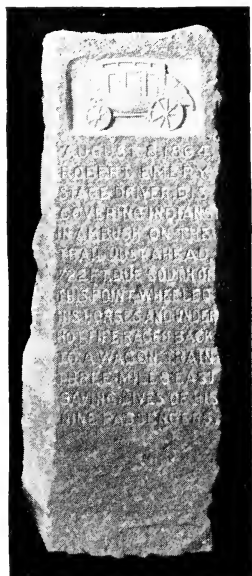 AUGUST 9 1864
ROBERT EMERY
STAGE DRIVER DIS
COVERING INDIANS
IN AMBUSH ON THIS
TRAIL JUST AHEAD
722 FT. DUE SOUTH OF
THIS POINT WHEELED
HIS HORSES AND UNDER
HOT FIRE RACED BACK
TO A WAGON TRAIN
THREE MILES EAST
SAVING LIVES OF HIS
NINE PASSENGERS